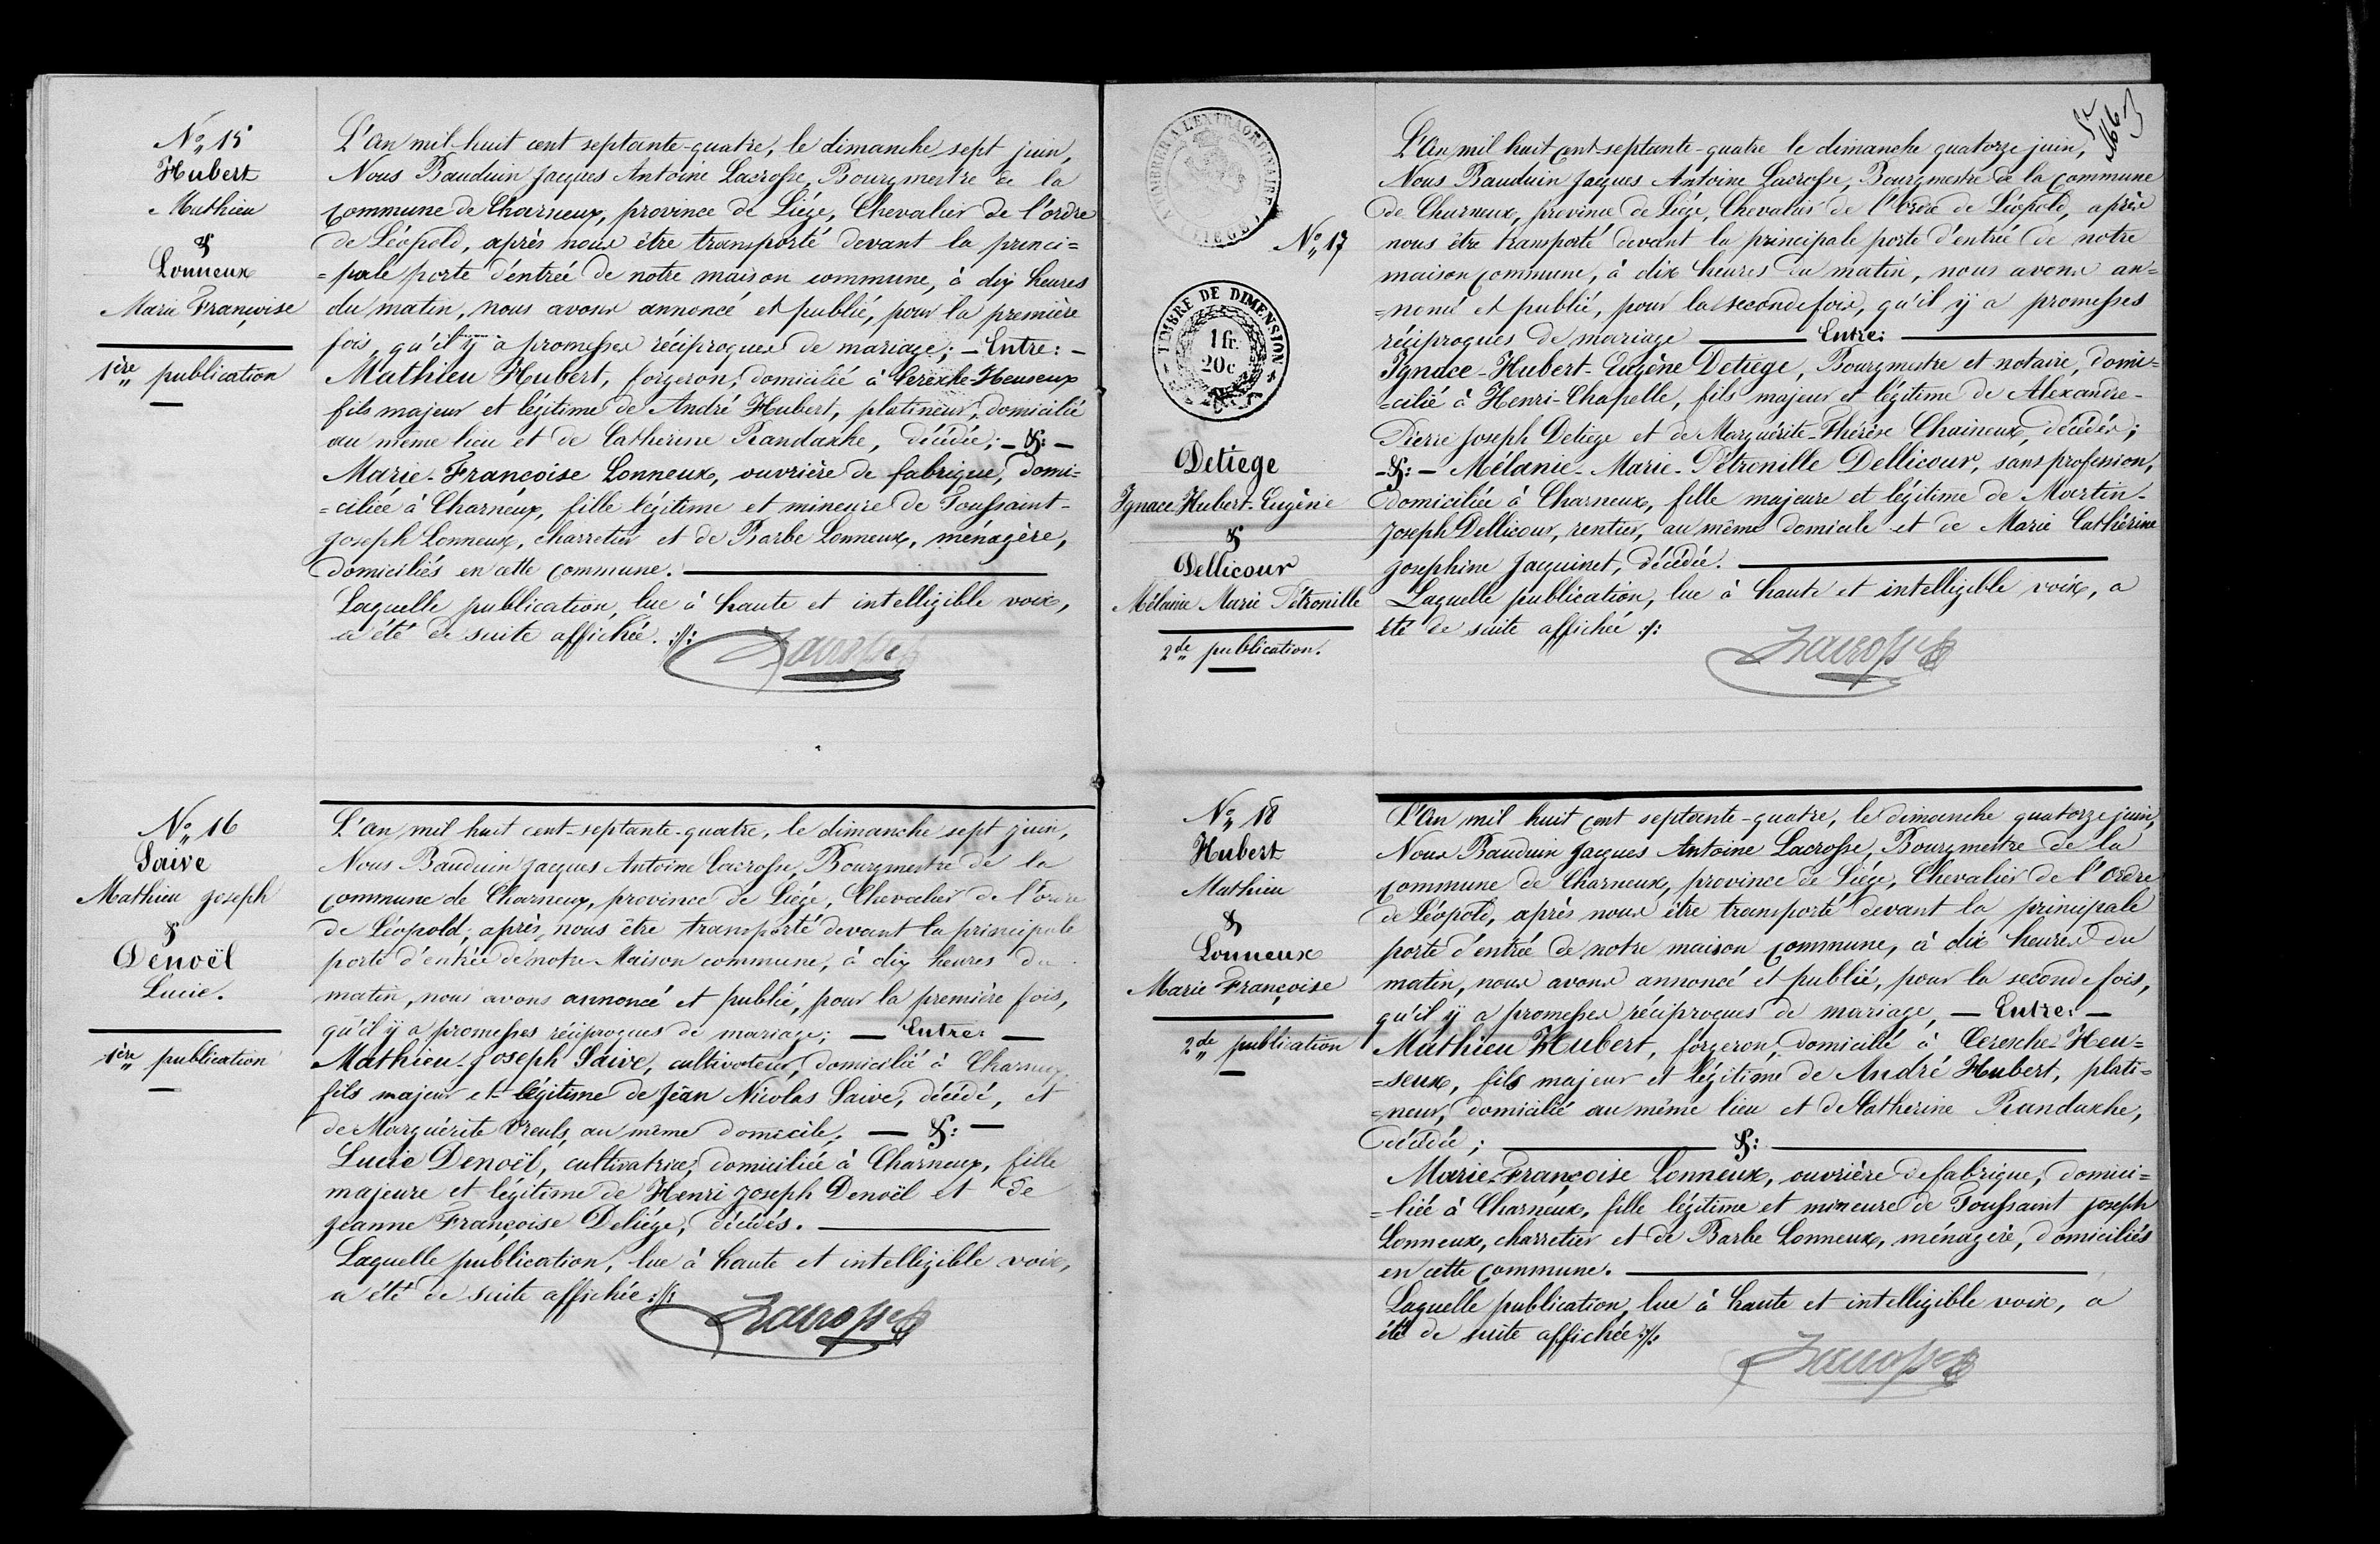 No 15
Hubert
Mathieu
&
Lonneux
Marie Françoise
1ère publication
L'an mil-huit cent septante-quatre, le dimanche sept juin,
Nous Bauduin Jacques Antoine Lacrosse, Bourgmestre de la
commune de Charneux, province de Liége, Chevalier de l'ordre
de Léopold, après nous être transporté devant la princi=
=pale porte d'entrée de notre maison commune, à dix heures
du matin, nous avons annoncé et publié, pour la première
fois, qu'il y a promesses réciproques de mariage; - Entre: -
Mathieu Hubert, forgeron, domicilié à Cerexhe-Heuseux
fils majeur et légitime de André Hubert, platineur, domicilié
au même lieu et de Catherine Randaxhe, décédée; - &: -
Marie-Françoise Lonneux, ouvrière de fabrique, domi=
=ciliée à Charneux, fille légitime et mineure de Toussaint-
Joseph Lonneux, charretier et de Barbe Lonneux, ménagère,
domiciliés en cette commune.
Laquelle publication, lue à haute et intelligible voix,
a été de suite affichée.
Lacrosse
No 16
Saive
Mathieu Joseph
&
Denoël
Lucie.
1ère publication
L'an mil huit cent-septante-quatre, le dimanche sept juin,
Nous Bauduin Jacques Antoine Lacrosse, Bourgmestre de la
commune de Charneux, province de Liége, Chevalier de l'ordre
de Léopold, après nous être transporté devant la principale
porte d'entrée de notre Maison commune, à dix heures du
matin, nous avons annoncé et publié, pour la première fois,
qu'il y a promesses réciproques de mariage; - Entre: -
Mathieu-Joseph Saive, cultivateur, domicilié à Charneux
fils majeur et légitime de Jean Nicolas Saive, décédé, et
de Marguérite Vreuls, au même domicile, - &: -
Lucie Denoël, cultivatrice, domiciliée à Charneux, fille
majeure et légitime de Henri Joseph Denoël et de
Jeanne Françoise Deliége, décédés.
Laquelle publication, lue à haute et intelligible voix,
a été de suite affichée
Lacrosse
TIMBRE DE DIMENSION
1 fr.
20 c.
No 17
Detiege
Ignace Hubert-Eugène
&
Dellicour
Mélanie Marie Pétronille
2de publication.
L'An mil huit cent-septante-quatre le dimanche quatorze juin,
Nous Bauduin Jacques Antoine Lacrosse, Bourgmestre de la commune
de Charneux, province de Liége, Chevalier de l'Ordre de Léopold, après
nous être transporté devant la principale porte d'entrée de notre
maison commune, à dix heures du matin, nous avons an=
=noncé et publié, pour la seconde fois, qu'il y a promesses
réciproques de mariage - Entre: -
Ignace-Hubert-Eugène Detiege, Bourgmestre et notaire, domi=
=cilié à Henri-Chapelle, fils majeur et légitime de Alexandre-
Pierre Joseph Detiege et de Marguérite-Thérèse Chaineux, décédés;
-&: - Mélanie-Marie-Pétronille Dellicour, sans profession,
domiciliée à Charneux, fille majeure et légitime de Martin-
Joseph Dellicour, rentier, au même domicile et de Marie Cathérine
Josephine Jacquinet, décédée.
Laquelle publication, lue à haute et intelligible voix, a
été de suite affichée
Lacrosse
No 18
Hubert
Mathieu
&
Lonneux
Marie Françoise
2de publication
L'An mil huit cent septante-quatre, le dimanche quatorze juin,
Nous Bauduin Jacques Antoine Lacrosse, Bourgmestre de la
commune de Charneux, province de Liége, Chevalier de l'Ordre
de Léopold, après nous être transporté devant la principale
porte d'entrée de notre maison commune, à dix heures du
matin, nous avons annoncé et publié, pour la seconde fois,
qu'il y a promesses réciproques de mariage, - Entre: -
Mathieu Hubert, forgeron, domicilié à Cerexhe-Heu=
=seux, fils majeur et légitime de André Hubert, plati=
=neur, domicilié au même lieu et de Catherine Randaxhe,
décédée; - &: -
Marie-Françoise Lonneux, ouvrière de fabrique, domici=
=liée à Charneux, fille légitime et mineure de Toussaint Joseph
Lonneux, charretier et de Barbe Lonneux, ménagère, domiciliés
en cette commune.
Laquelle publication, lue à haute et intelligible voix, a
été de suite affichée
Lacrosse